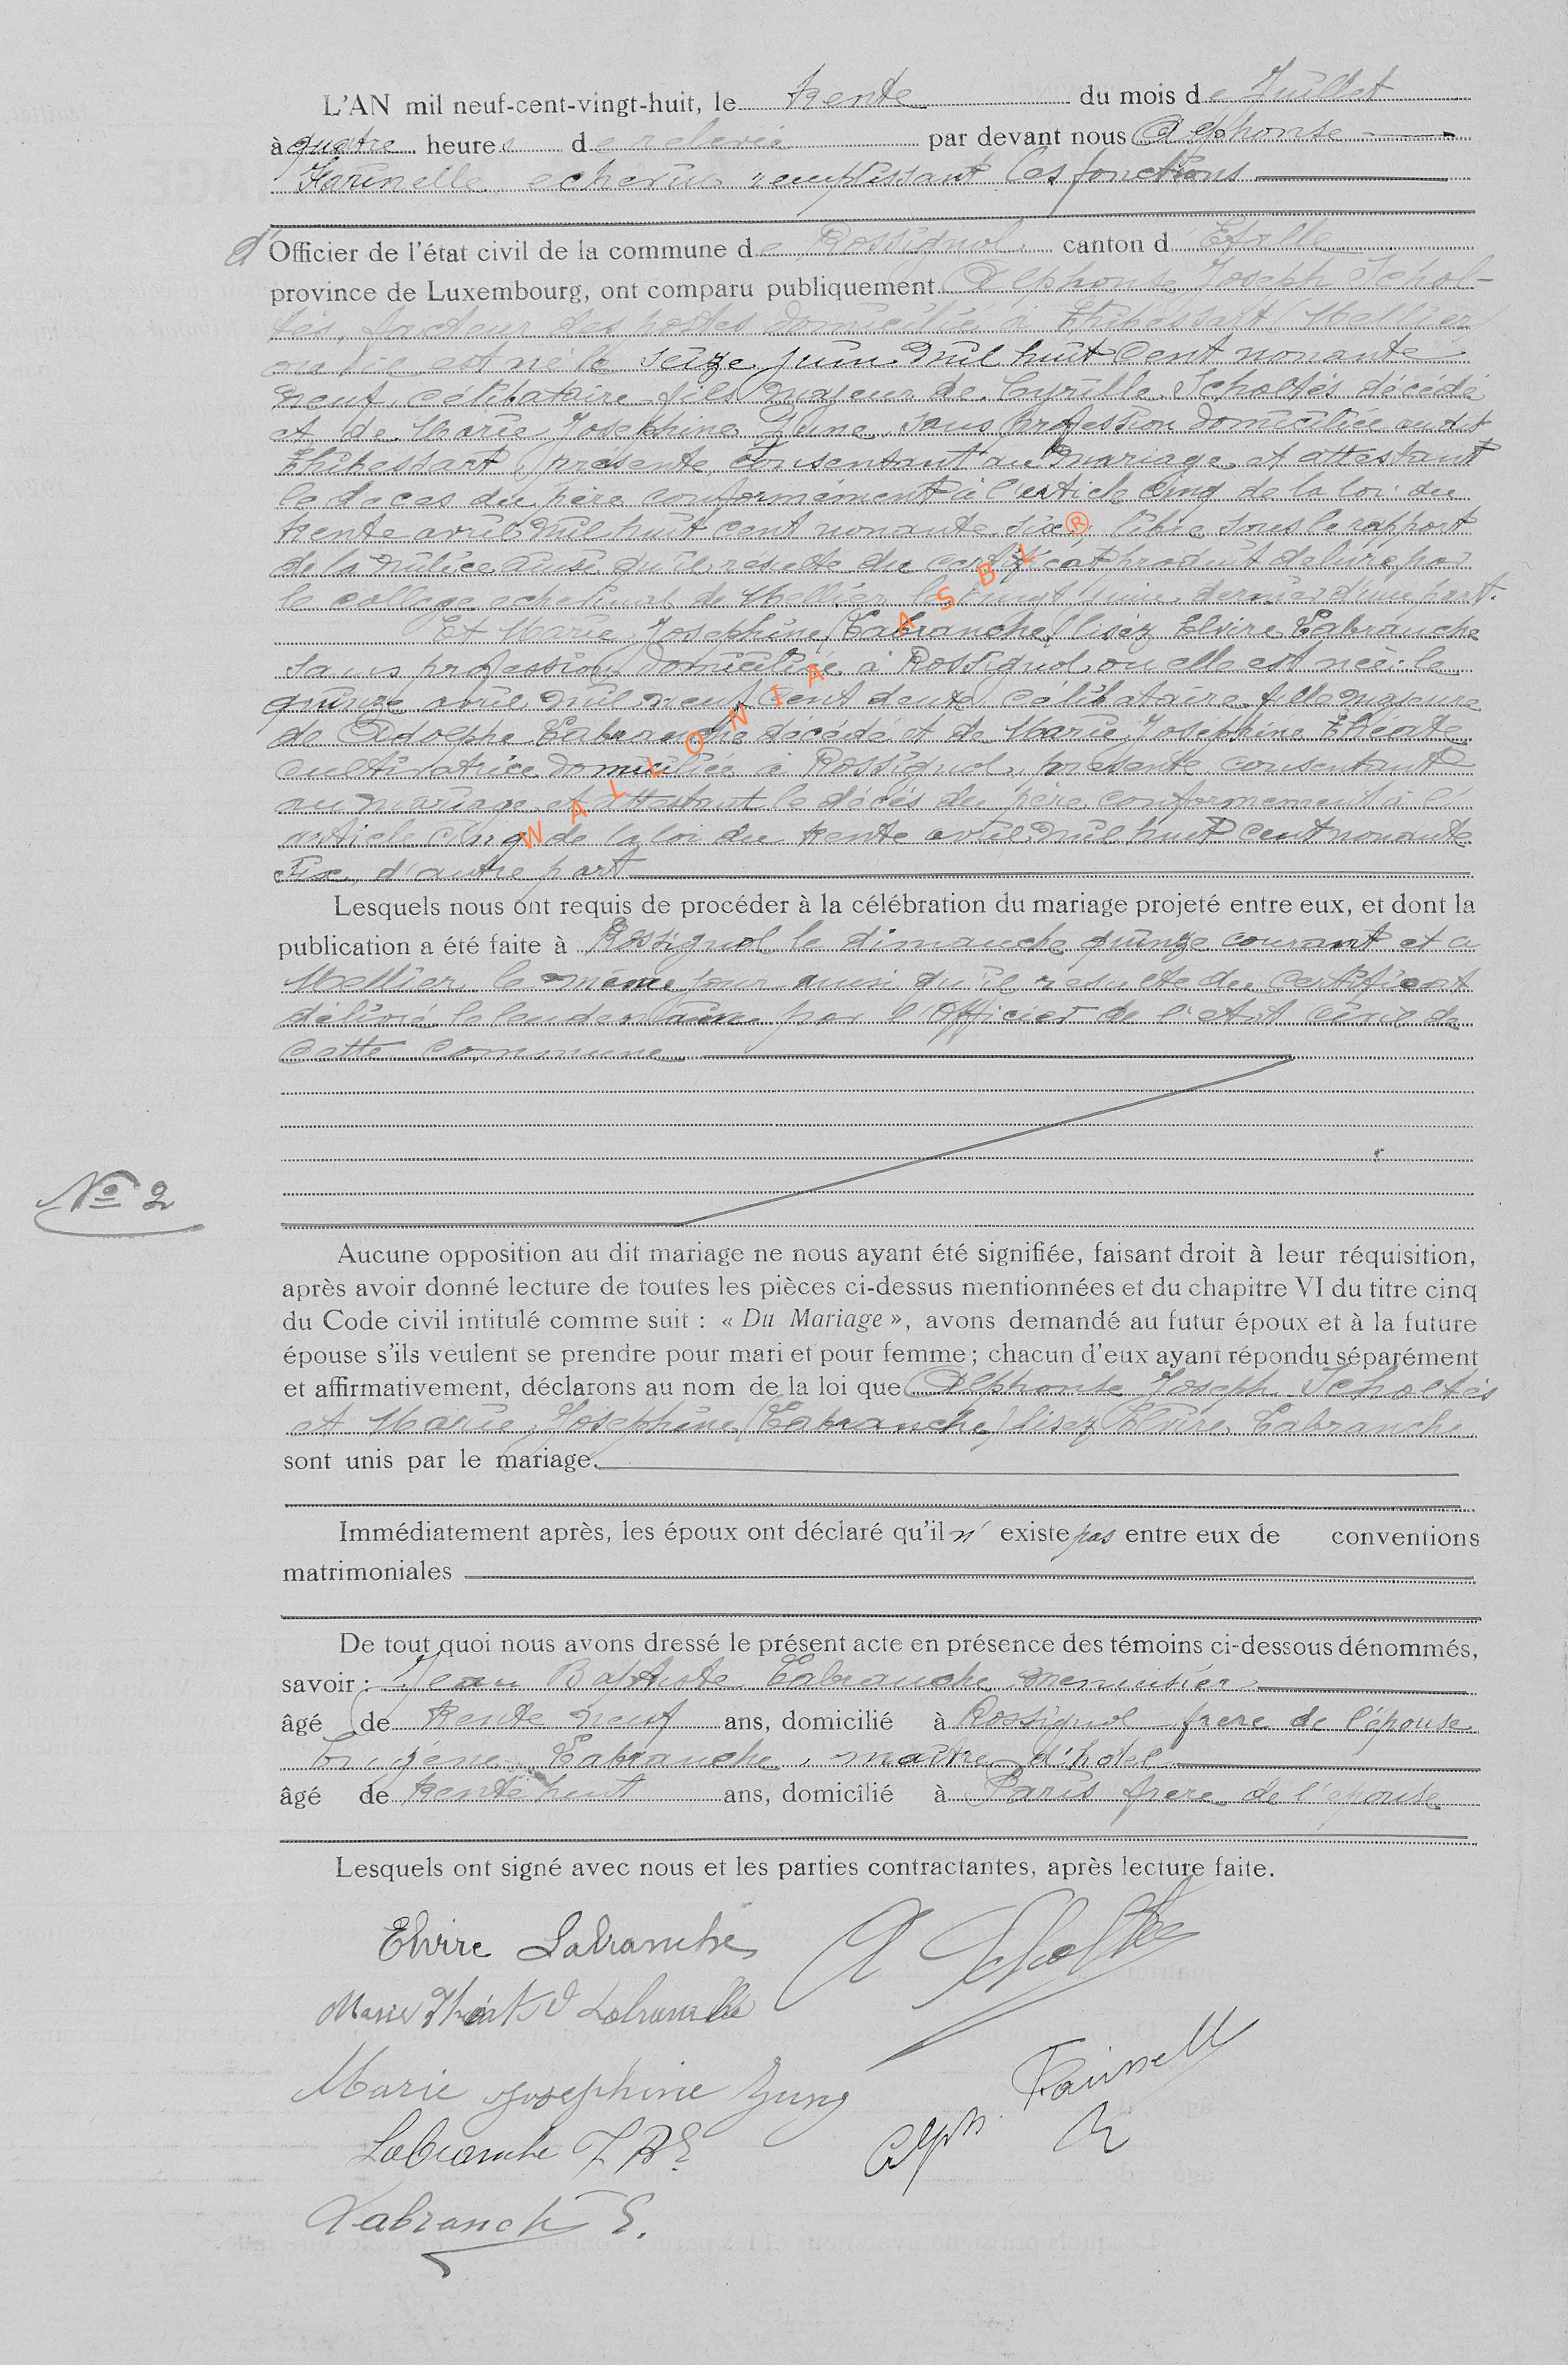 L'AN mil neuf-cent-vingt-huit, le trente du mois de Juillet
à quatre heures de relevée par devant nous Alphonse
Farinelle, echevin remplissant les fonctions
d'Officier de l'état civil de la commune de Rossignol, canton d'Etalle
province de Luxembourg, ont comparu publiquement Alphonse Joseph Schol-
tès, facteur des postes domicilié à Thibessart (Mellier)
où il est né le seize juin mil huit cent nonante
neuf, célibataire fils majeur de Cyrille Scholtès décédé
et de Marie Josephine Zune, sans profession domiciliée au dit
Thibessart, présente, consentant au mariage, et attestant
le deces du père conformément à l'article cinq de la loi du
trente avril mil huit cent nonante six, libre sous le rapport
de la milice ainsi qu'il résulte du certificat produit délivré par
le college echevinal de Mellier le vingt juin dernier d'une part.
Et Marie Josephine (Labranche) lisez Elvire Labranche
sans profession domiciliée à Rossignol où elle est née le
quinze avril mil neuf cent deux célibataire fille majeure
de Adolphe Labranche décédé et de Marie Joséphine Théate
cultivatrice domiciliée à Rossignol, présente consentant
au mariage et attestant le décès du père conformement à l'
article cinq de la loi du trente avril mil huit cent nonante
six, d'autre part
Lesquels nous ont requis de procéder à la célébration du mariage projeté entre eux, et dont la
publication a été faite à Rossignol le dimanche quinze courant et a
Mellier le même jour ainsi qu'il resulte du certificat
délivré le lendemain par l'Officier de l'etat Civil de
cette commune
N° 2
Aucune opposition au dit mariage ne nous ayant été signifiée, faisant droit à leur réquisition,
après avoir donné lecture de toutes les pièces ci-dessus mentionnées et du chapitre VI du titre cinq
du Code civil intitulé comme suit : « Du Mariage », avons demandé au futur époux et à la future
épouse s'ils veulent se prendre pour mari et pour femme; chacun d'eux ayant répondu séparément
et affirmativement, déclarons au nom de la loi que Alphonse Joseph Scholtès
et Marie Joséphine (Labranche) lisez Elvire Labranche
sont unis par le mariage.
Immédiatement après, les époux ont déclaré qu'il n'existe pas entre eux de conventions
matrimoniales
De tout quoi nous avons dressé le présent acte en présence des témoins ci-dessous dénommés,
savoir : Jean Baptiste Labranche menuisier
âgé de trente neuf ans, domicilié à Rossignol frere de l'épouse
Eugène Labranche, maître d'hotel
âgé de trente huit ans, domicilié à Paris frere de l'epouse
Lesquels ont signé avec nous et les parties contractantes, après lecture faite.
Elvire Labranche A Scholtès
Marie Théate V Labranche
Marie Josephine Zune
Alph. Farinelle
Labranche J Bte
Labranche E.
WALLONIA ASBL ®